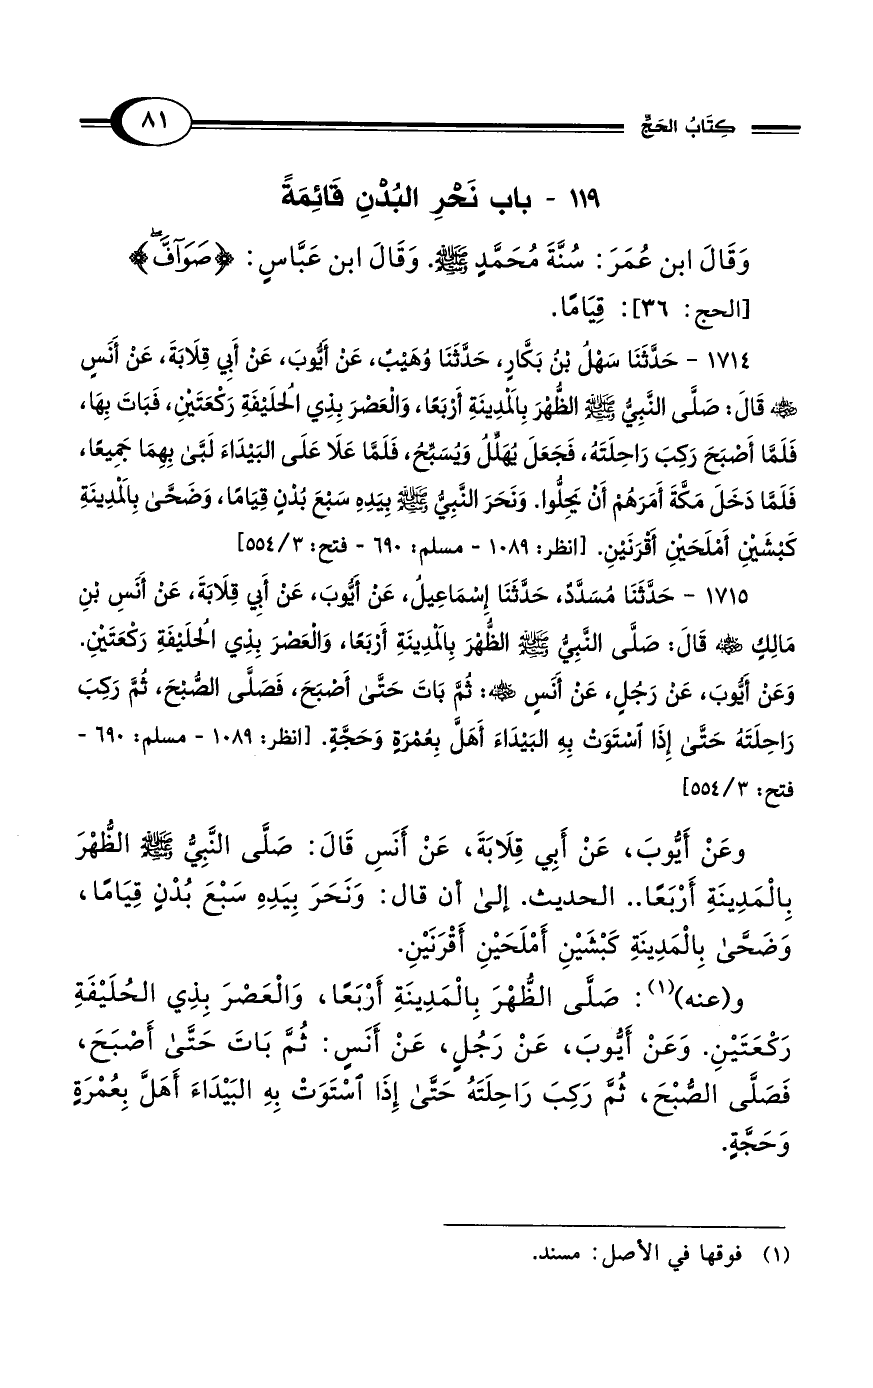 كِتَابُ الحَجِّ ٨١
١١٩ - باب نَحْرِ البُدْنِ قَائِمَةً
وَقَالَ ابن عُمَرَ: سُنَّةَ مُحَمَّدٍ ﷺ. وَقَالَ ابن عَبَّاسٍ: ﴿صَوَآفَّۖ﴾
[الحج: ٣٦]: قِيَامًا.
١٧١٤ - حَدَّثَنَا سَهْلُ بْنُ بَكَّارٍ، حَدَّثَنَا وُهَيْبٌ، عَنْ أَيُّوبَ، عَنْ أَبِي قِلَابَةَ، عَنْ أَنَسٍ
رضي الله عنه قَالَ: صَلَّى النَّبِيُّ ﷺ الظُّهْرَ بِالْمَدِينَةِ أَرْبَعًا، وَالْعَصْرَ بِذِي الْحُلَيْفَةِ رَكْعَتَيْنِ، فَبَاتَ بِهَا،
فَلَمَّا أَصْبَحَ رَكِبَ رَاحِلَتَهُ، فَجَعَلَ يُهَلِّلُ وَيُسَبِّحُ، فَلَمَّا عَلَا عَلَى البَيْدَاءَ لَبَّىٰ بِهِمَا جَمِيعًا،
فَلَمَّا دَخَلَ مَكَّةَ أَمَرَهُمْ أَنْ يَحِلُّوا. وَنَحَرَ النَّبِيُّ ﷺ بِيَدِهِ سَبْعَ بُدْنٍ قِيَامًا، وَضَحَّىٰ بِالْمَدِينَةِ
كَبْشَيْنِ أَمْلَحَيْنِ أَقْرَنَيْنِ. [انظر: ١٠٨٩ - مسلم: ٦٩٠ - فتح: ٣/ ٥٥٤]
١٧١٥ - حَدَّثَنَا مُسَدَّدٌ، حَدَّثَنَا إِسْمَاعِيلُ، عَنْ أَيُّوبَ، عَنْ أَبِي قِلَابَةَ، عَنْ أَنَسِ بْنِ
مَالِكٍ رضي الله عنه قَالَ: صَلَّى النَّبِيُّ ﷺ الظُّهْرَ بِالْمَدِينَةِ أَرْبَعًا، وَالْعَصْرَ بِذِي الْحُلَيْفَةِ رَكْعَتَيْنِ.
وَعَنْ أَيُّوبَ، عَنْ رَجُلٍ، عَنْ أَنَسٍ رضي الله عنه: ثُمَّ بَاتَ حَتَّىٰ أَصْبَحَ، فَصَلَّى الصُّبْحَ، ثُمَّ رَكِبَ
رَاحِلَتَهُ حَتَّىٰ إِذَا ٱسْتَوَتْ بِهِ البَيْدَاءَ أَهَلَّ بِعُمْرَةٍ وَحَجَّةٍ. [انظر: ١٠٨٩ - مسلم: ٦٩٠ -
فتح: ٣/ ٥٥٤]
وعَنْ أَيُّوبَ، عَنْ أَبِي قِلَابَةَ، عَنْ أَنَسٍ قَالَ: صَلَّى النَّبِيُّ ﷺ الظُّهْرَ
بِالْمَدِينَةِ أَرْبَعًا.. الحديث. إلىٰ أن قال: وَنَحَرَ بِيَدِهِ سَبْعَ بُدْنٍ قِيَامًا،
وَضَحَّىٰ بِالْمَدِينَةِ كَبْشَيْنِ أَمْلَحَيْنِ أَقْرَنَيْنِ.
و(عنه)(١): صَلَّى الظُّهْرَ بِالْمَدِينَةِ أَرْبَعًا، وَالْعَصْرَ بِذِي الحُلَيْفَةِ
رَكْعَتَيْنِ. وَعَنْ أَيُّوبَ، عَنْ رَجُلٍ، عَنْ أَنَسٍ: ثُمَّ بَاتَ حَتَّىٰ أَصْبَحَ،
فَصَلَّى الصُّبْحَ، ثُمَّ رَكِبَ رَاحِلَتَهُ حَتَّىٰ إِذَا ٱسْتَوَتْ بِهِ البَيْدَاءَ أَهَلَّ بِعُمْرَةٍ
وَحَجَّةٍ.
(١) فوقها في الأصل: مسند.